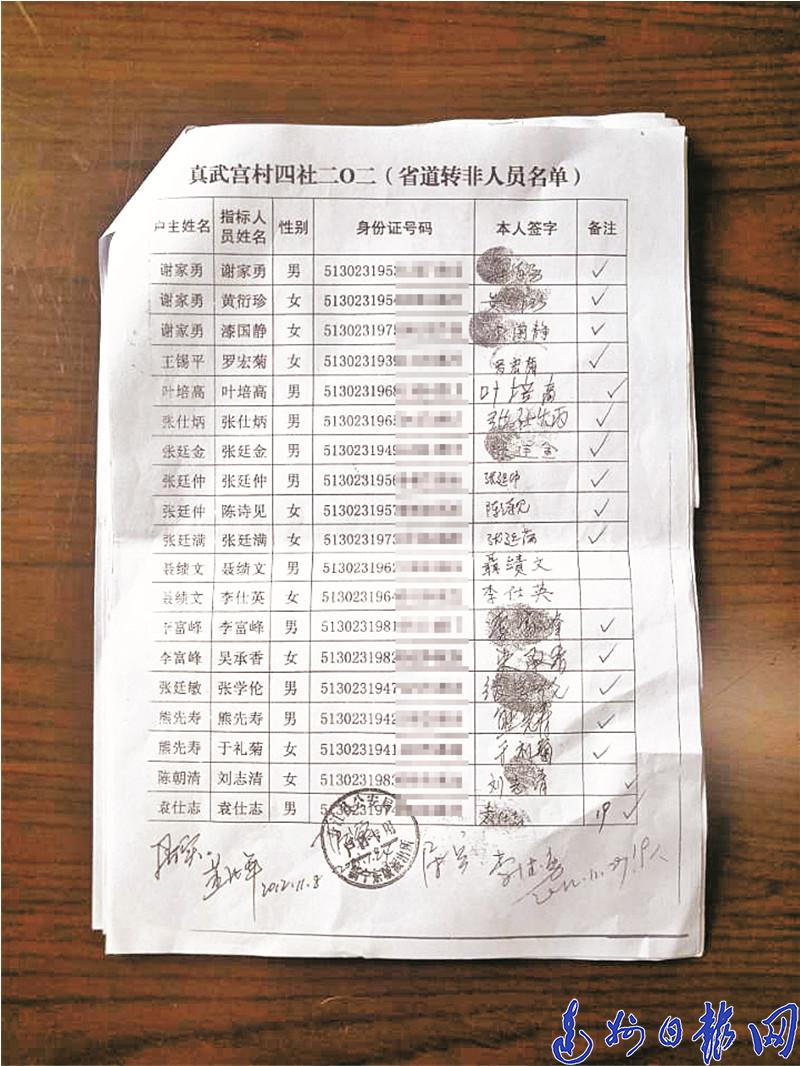 真武宫村四社二〇二（省道转非人员名单）
户主姓名 指标人员姓名 性别 身份证号码 本人签字 备注
谢家勇 谢家勇 男 513023195 ✓
谢家勇 黄衍珍 女 513023195 ✓
谢家勇 漆国静 女 513023197 国静 ✓
王锡平 罗宏菊 女 513023193 罗宏菊 ✓
叶培高 叶培高 男 513023196 叶培高 ✓
张仕炳 张仕炳 男 513023196 ✓
张廷金 张廷金 男 513023194 张廷金 ✓
张廷仲 张廷仲 男 513023195 张廷仲 ✓
张廷仲 陈诗见 女 513023195 ✓
张廷满 张廷满 女 513023197 张廷满 ✓
聂绩文 聂绩文 男 513023196 聂绩文
聂绩文 李仕英 女 513023196 李仕英
李富峰 李富峰 男 513023198 李富峰 ✓
李富峰 吴承香 女 513023198 ✓
张廷敏 张学伦 男 513023194 ✓
熊先寿 熊先寿 男 513023194 ✓
熊先寿 于礼菊 女 513023194 于礼菊 ✓
陈朝清 刘志清 女 513023198 刘志清 ✓
袁仕志 袁仕志 男 袁仕志 19 ✓
2012.11.8
19人
达州日报网